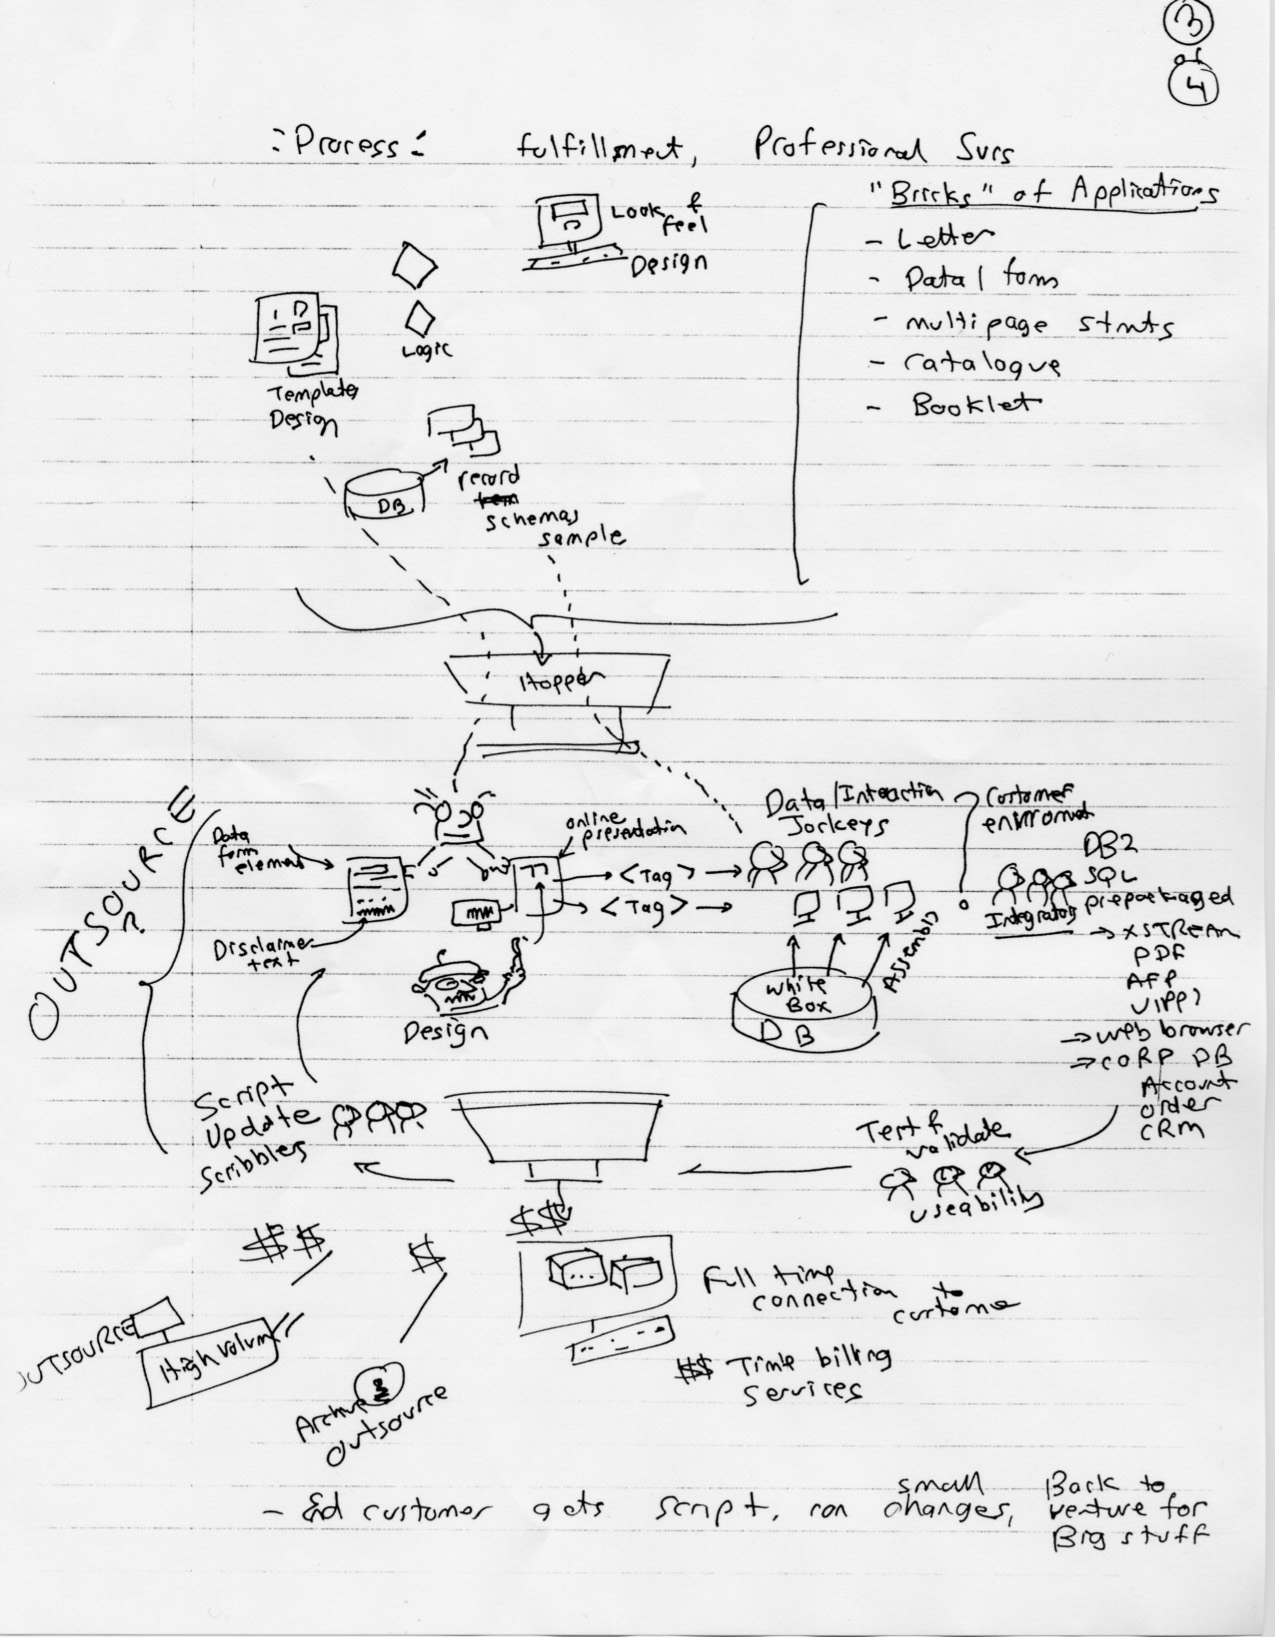 3
of
4
:Process: fulfillment, Professional Svcs
"Bricks" of Applications
- Letter
- Data / form
- multipage stmts
- catalogue
- Booklet
Look &
feel
Design
Logic
Template
Design
DB
record
schemas
sample
Hopper
OUTSOURCE
?
Data
form
element
Disclaimer
text
online
presentation
<Tag>
<Tag>
Design
Data/Interaction
Jockeys
White
Box
DB
Assembly
Customer
Integrators
DB2
SQL
prepackaged
→ XSTREAM
PDF
AFP
VIPP?
→ web browser
→ CORP DB
Account
order
CRM
Test &
validate
useability
Script
Update
Scribblers
$$
$$
$
OUTSOURCE
High Volum
Archive
Outsource
Full time
connection to
customer
$$ Time billing
Services
- End customer gets script, can small changes,
Back to
venture for
Big stuff